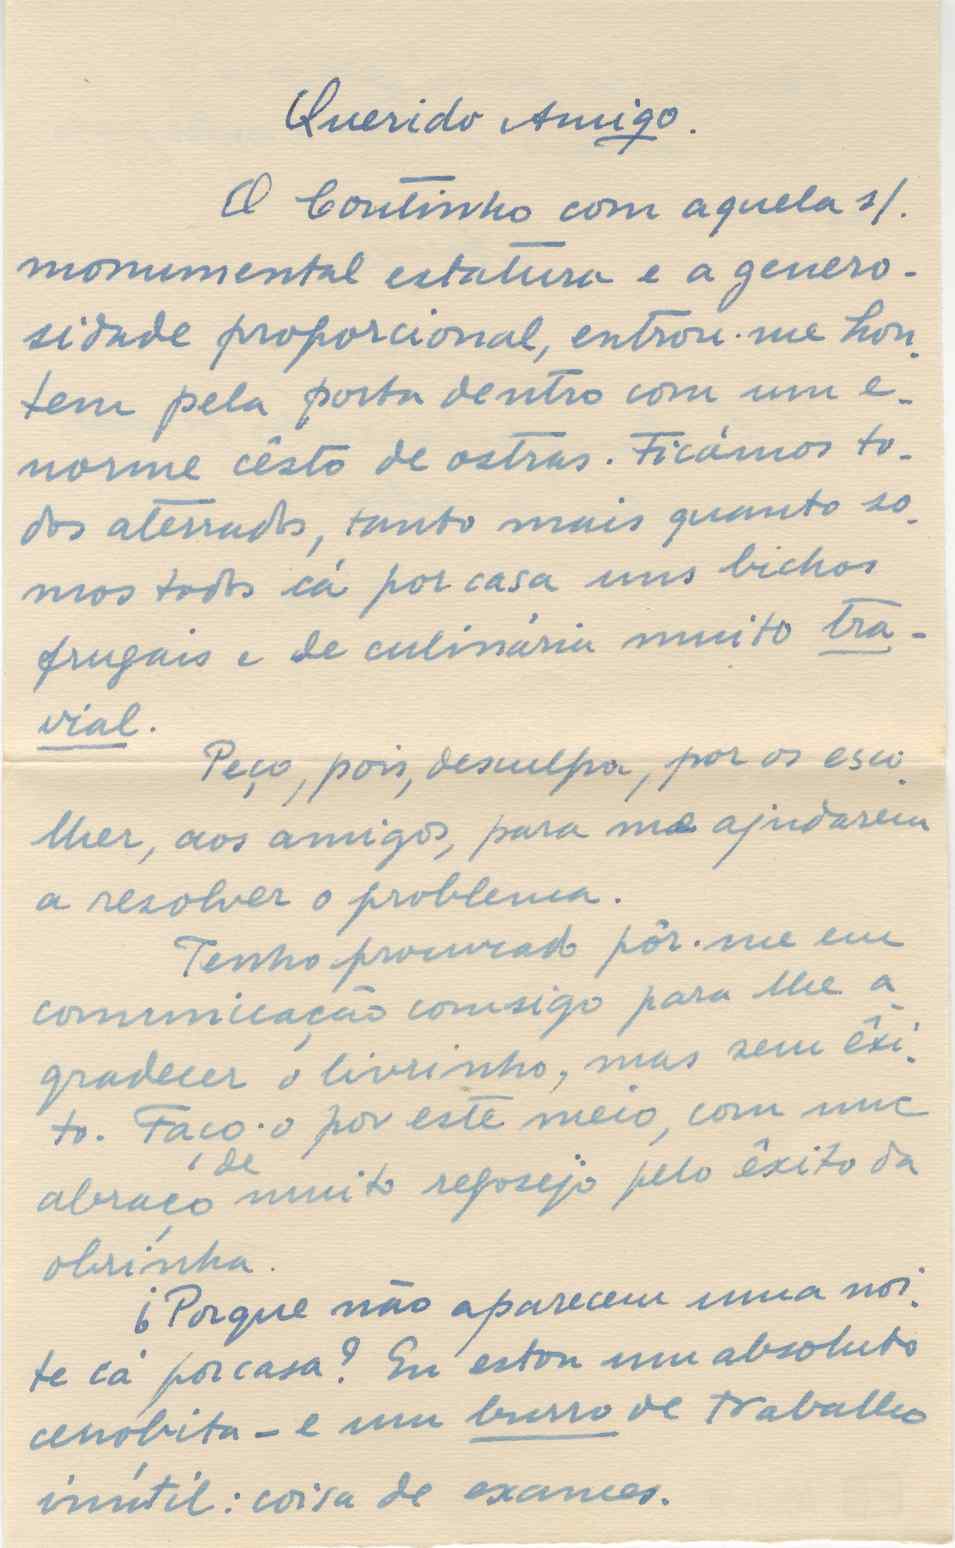 Querido Amigo.
O Coutinho com aquela s/.
monumental estatura e a genero-
sidade proporcional, entrou-me hon-
tem pela porta dentro com um e-
norme cêsto de ostras. Ficámos to-
dos aterrados, tanto mais quanto so-
mos todos cá por casa uns bichos
frugais e de culinária muito tra-
vial.
Peço, pois, desculpa, por os esco-
lher, aos amigos, para me ajudarem
a resolver o problema.
Tenho procurado pôr-me em
comunicação comsigo para lhe a-
gradecer o livrinho, mas sem êxi-
to. Faço-o por este meio, com um
abraço de muito regosijo pelo êxito da
obrinha.
¿Porque não aparecem uma noi-
te cá por casa? Eu estou um absoluto
cenobita - e um burro de trabalho
inútil: coisa de exames.